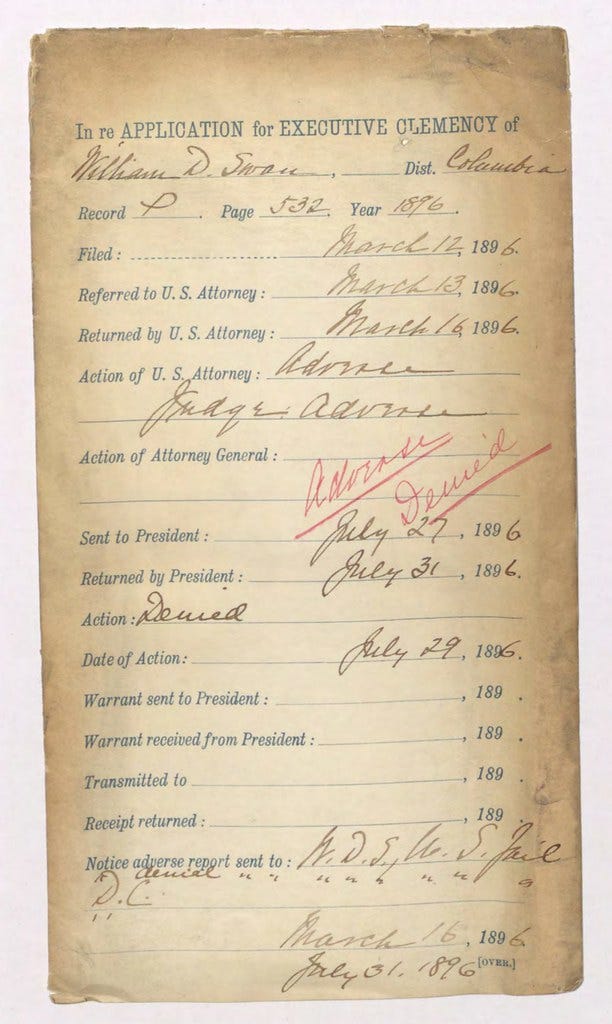 In re APPLICATION for EXECUTIVE CLEMENCY of
William D. Swan, Dist. Columbia
Record P. Page 532. Year 1896.
Filed: March 12, 1896.
Referred to U. S. Attorney: March 13, 1896.
Returned by U. S. Attorney: March 16, 1896.
Action of U. S. Attorney: Adverse
Judge. Adverse
Action of Attorney General: Adverse
Denied
Sent to President: July 27, 1896
Returned by President: July 31, 1896.
Action: Denied
Date of Action: July 29, 1896.
Warrant sent to President: , 189 .
Warrant received from President: , 189 .
Transmitted to , 189 .
Receipt returned: , 189 .
Notice adverse report sent to: W. D. S., U. S. Jail
denial " " " " " " " "
D. C.
" "
March 16, 1896.
July 31. 1896 [OVER.]